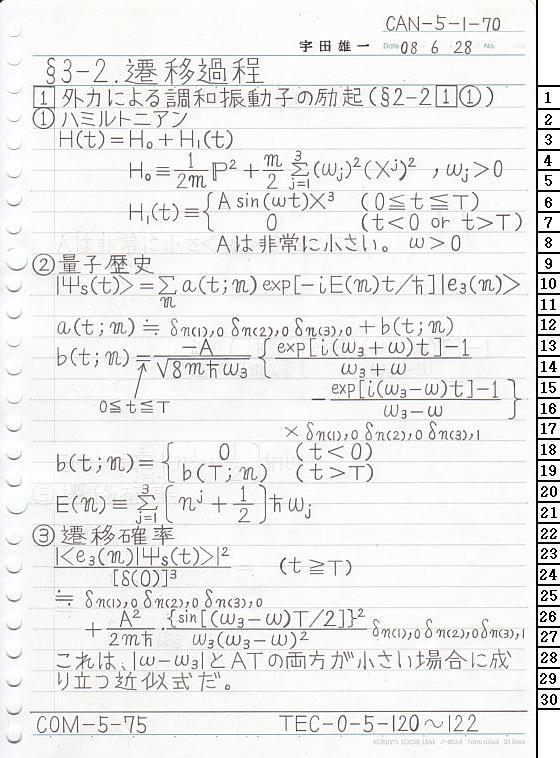 CAN-5-1-70
宇田雄一 Date 08・6・28 No.
§3-2.遷移過程
1 外力による調和振動子の励起(§2-2 1 ①)
① ハミルトニアン
H(t)=H₀+H₁(t)
H₀≡1/2m ℙ²+m/2 Σ_{j=1}^{3}(ω_j)²(X^j)² , ω_j>0
H₁(t)≡{A sin(ωt)X³ (0≦t≦T)
0 (t<0 or t>T)
Aは非常に小さい。 ω>0
② 量子歴史
|Ψs(t)>=Σ_n a(t;n)exp[-iE(n)t/ħ]|e₃(n)>
a(t;n)≒δn(1),0 δn(2),0 δn(3),0+b(t;n)
b(t;n)=-A/√8mħω₃ {exp[i(ω₃+ω)t]-1/ω₃+ω
0≦t≦T
-exp[i(ω₃-ω)t]-1/ω₃-ω}
×δn(1),0 δn(2),0 δn(3),1
b(t;n)={0 (t<0)
b(T;n) (t>T)
E(n)≡Σ_{j=1}^{3}[n^j+1/2]ħω_j
③ 遷移確率
|<e₃(n)|Ψs(t)>|²/[δ(0)]³ (t≧T)
≒δn(1),0 δn(2),0 δn(3),0
+A²/2mħ・{sin[(ω₃-ω)T/2]}²/ω₃(ω₃-ω)² δn(1),0 δn(2),0 δn(3),1
これは、|ω-ω₃|とATの両方が小さい場合に成
り立つ近似式だ。
COM-5-75 TEC-0-5-120～122
KOKUYO LOOSE-LEAF ノ-836A 7mm ruled 31 lines
1
2
3
4
5
6
7
8
9
10
11
12
13
14
15
16
17
18
19
20
21
22
23
24
25
26
27
28
29
30